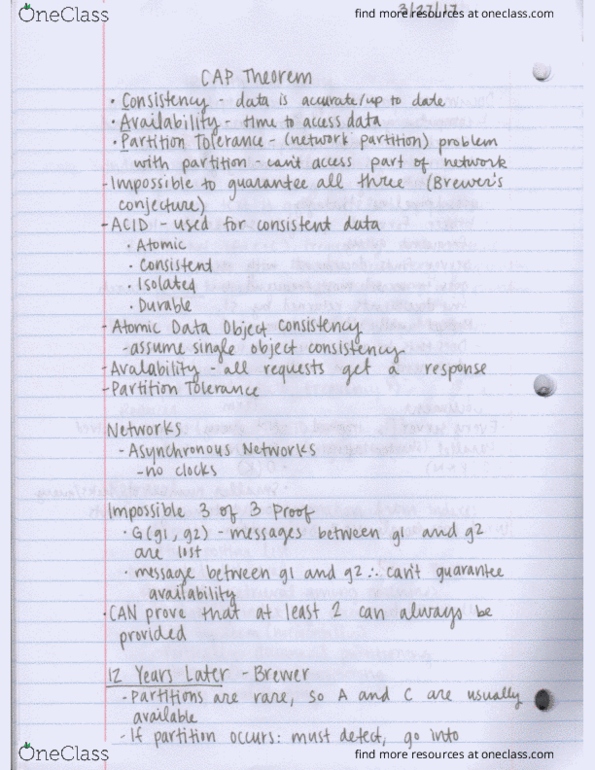 OneClass
find more resources at oneclass.com
3/27/17
CAP Theorem
• Consistency - data is accurate/up to date
• Availability - time to access data
• Partition Tolerance - (network partition) problem
with partition - can't access part of network
- Impossible to guarantee all three (Brewer's
conjecture)
- ACID - used for consistent data
• Atomic
• Consistent
• Isolated
• Durable
- Atomic Data Object consistency
- assume single object consistency
- Avalability - all requests get a response
- Partition Tolerance
Networks
- Asynchronous Networks
- no clocks
Impossible 3 of 3 Proof
• G(g1, g2) - messages between g1 and g2
are lost
• message between g1 and g2 ∴ can't guarantee
availability
• CAN prove that at least 2 can always be
provided
12 Years Later - Brewer
- Partitions are rare, so A and C are usually
available
- If partition occurs: must detect, go into
OneClass
find more resources at oneclass.com